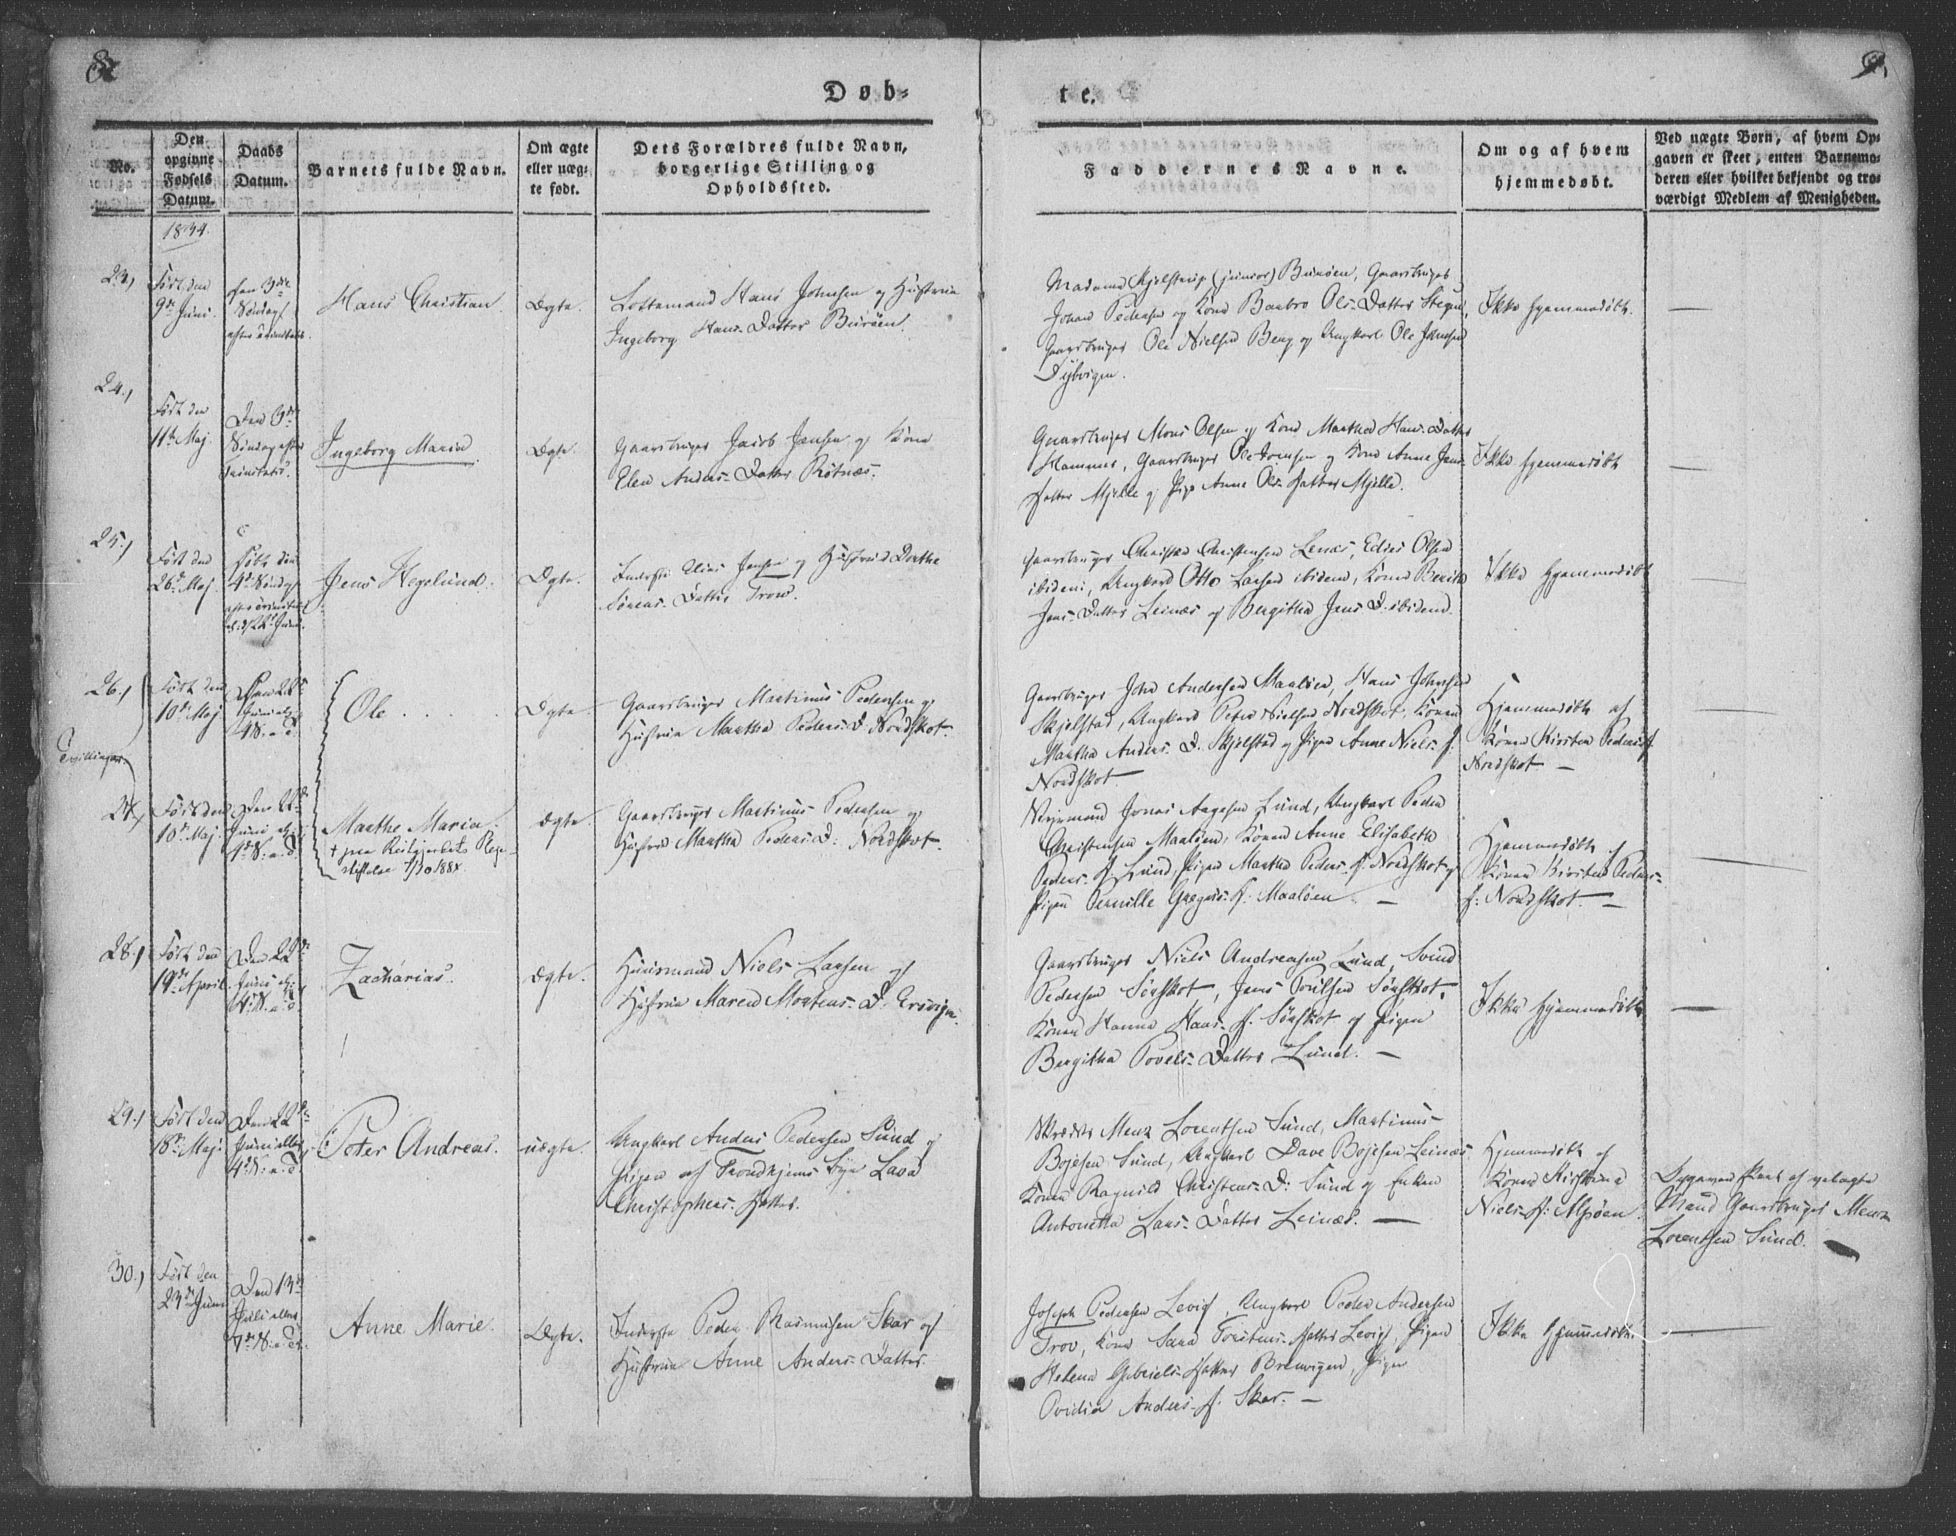 8
9.
Døb-
te.
No.
Den
opgivne
Fødsels
Datum.
Daabs
Datum.
Barnets fulde Navn.
Om ægte
eller uæg-
te født.
Dets Forældres fulde Navn,
borgerlige Stilling og
Opholdssted.
Faddernes Navne.
Om og af hvem
hjemmedøbt.
Ved uægte Børn, af hvem Op-
gaven er skeet, enten Barnemo-
deren eller hvilket bekjendt og tro-
værdigt Medlem af Menigheden.
1834.
23,)
Født den
9de Juni.
den 3die
Søndag
efter trinitatis.
Hans Christian
Ægte.
Lottemand Hans Johnsen og Hustrue
Ingeborg Hans-Datter Burøen.
Madame Kjelstrup (junior) Burøen, Gaardbruger
Johan Pedersen og Kone Barbro Ols-Datter
Gaardbruger Ole Nielsen Berg og Ungkarl Ole Johnsen
Dybvigen.
Ikke hjemmedøbt.
24.)
Født den
11te Maj
Den 3die
Søndag efter
trinitatis.
Ingeborg Maria
Ægte.
Gaardbruger Jacob Jensen og Kone
Elen Anders-Datter Røtnæs.
Gaardbruger Mons Olsen og Kone Martha Hans-Datter
Hammer, Gaardbruger Ole og Kone Anne Jens-
Datter Mjelle og Pige Anne Ols-Datter Mjelle.
Ikke hjemmedøbt
25.)
Født den
26de Maj.
Døbt den
4de Søndag
Jens Hegelund.
Ægte.
Inderst Elias Jensen og Hustrue Dorthe
Datter Trow.
Gaardbruger Christen Christensen Leinæs, Olsen
ibidem, Ungkarl Otto Larsen ibidem, Konen Berith
Jens-Datter Leinæs og Bergitha Jens D. ibidem.
Ikke hjemmedøbt
26.)
Født den
10de Maj
Den 22de
Juni
4 S. e. T.
Ole
Ægte
Gaardbruger Martinus Pedersen og
Hustrue Martha Peders-D. Nordskot.
Gaardbruger John Andersen Maaløen, Hans Johnsen
Skjelstad, Ungkarl Peter Nielsen Nordskot, Konen
Martha Anders-D. Skjelstad og Pigen Anne Niels-D.
Nordskot
Hjemmedøbt af
Konen Kirsten Peders-D.
Nordskot —
Tvillinger.
27,)
Født den
10de Maj.
Den 22de
Juni
4de S. e. T.
Marthe Maria.
7/10 1884.
Ægte.
Gaardbruger Martinus Pedersen og
Hustrue Martha Peders D: Nordskot.
Jonas Aagesen Lund, Ungkarl Peder
Christensen Maaløen, Konen Anne Elisabeth
Peders-D. Lund, Pigen Martha Peders-D. Nordskot og
Pigen Pernille Gregers-D: Maaløen. —
Hjemmedøbt af
Konen Kirsten Peders-
D: Nordskot. —
28.)
Født den
19de April
Den 22de
Juni
4. S. e. T.
Zacharias.
Ægte.
Huusmand Niels Larsen og
Hustrue Maren Mortens-D.
Gaardbruger Niels Andreasen Lund, Svend
Pedersen Sørskot, Jens Poulsen Sørskot,
Konen Hanna Hans-D. Sørskot og Pigen
Bergitha Povels-Datter Lund. —
Ikke hjemmedøbt
29.)
Født den
18de Maj.
Den 22de
Juni eller
4de S. e. T.
Peter Andreas.
uægte.
Ungkarl Anders Pedersen Sund og
Pigen af Trondhjems Bye Lava
Christophers-Datter.
Menz Lorentsen Sund, Martinus
Bojesen Sund, Ungkarl Dave Bojesen Leinæs
Konen Ragnild Christens-D: Sund og Enken
Antonetta Lars-Datter Leinæs. —
Hjemmedøbt af
Konen Kirstina
Niels-D:
Opgaven skeet af
Mand Gaardbruger Menz
Lorentsen Sund.
30.)
Født den
23de Juni
Den 13de
Juli eller
7de S. e. T.
Anne Marie.
Ægte.
Inderste Peder Rasmusen Skar og
Hustrue Anne Anders-Datter.
Joseph Pedersen Levig, Ungkarl Peder Andersen
Trov, Kone Sara Datter Levig, Pigen
Helena Gabriels-Datter Brenvigen, Pigen
Ovidia Anders-D. Skar. —
Ikke hjemmedøbt.